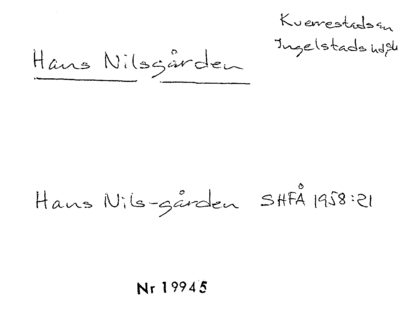 Kverrestads sn
Ingelstads hd, Sk
Hans Nilsgården
Hans Nils-gården SHFÅ 1958:21
Nr 19945